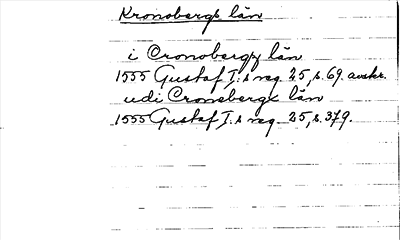 Kronobergs län
i Cronobergz län
1555 Gustaf I:s reg. 25, s. 69. avskr.
udi Cronebergx län
1555 Gustaf I:s reg 25, s. 379.